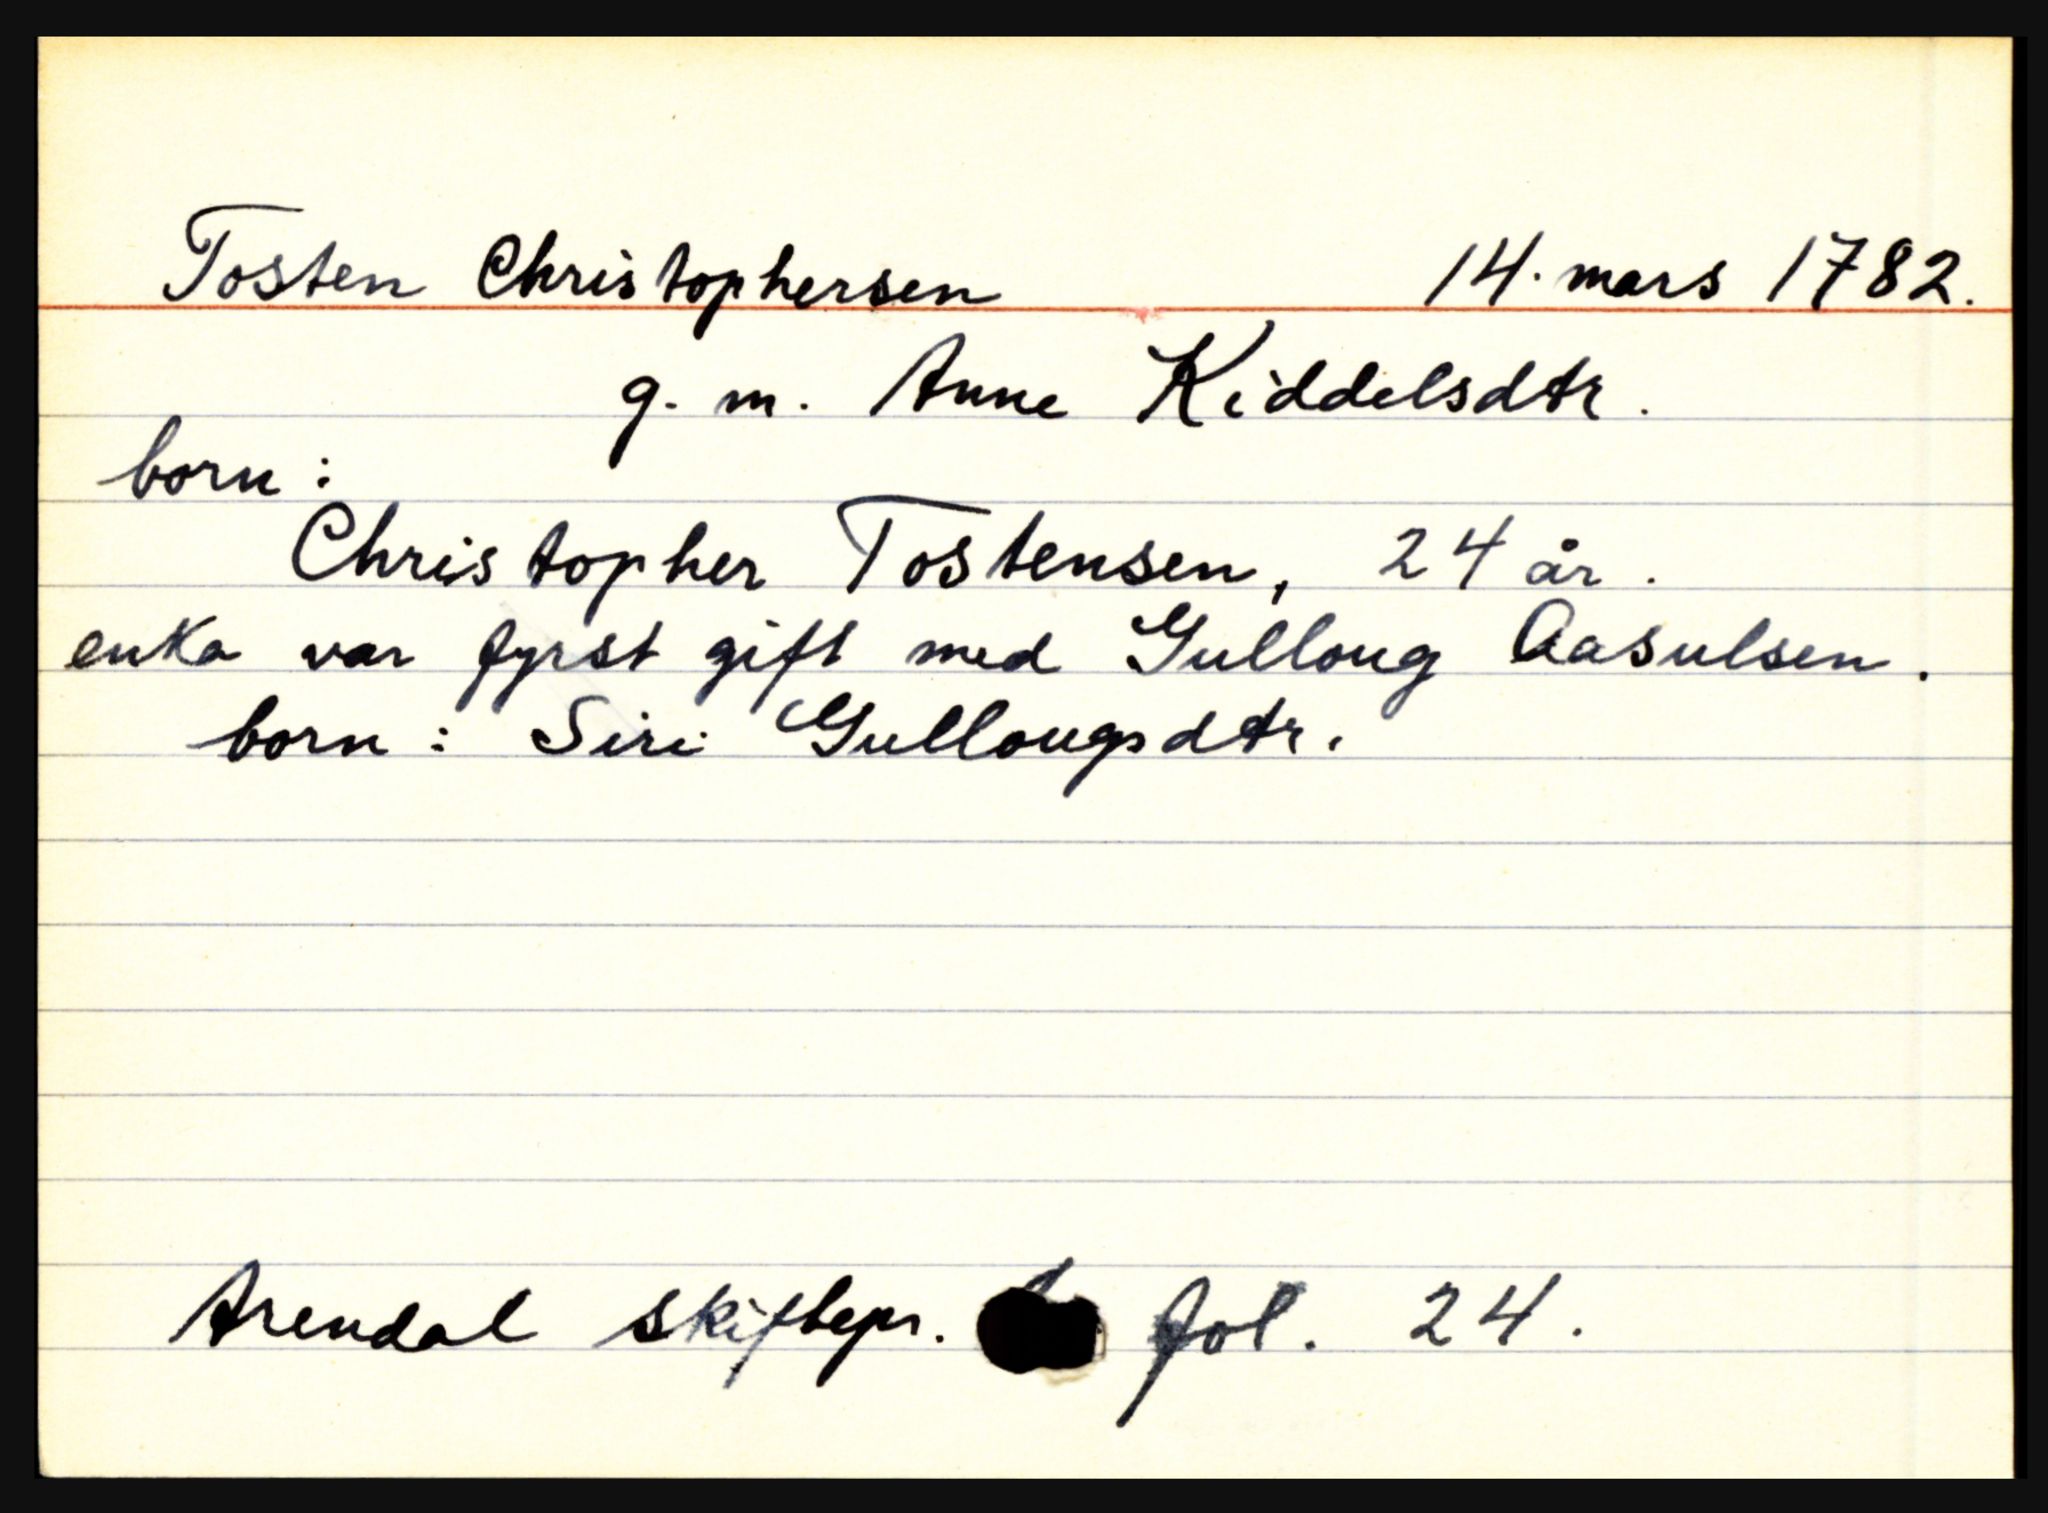 Tosten Christophersen 14. mars 1782.
g. m. Anne Kiddelsdtr.
born:
Christopher Tostensen, 24 år.
enka var fyrst gift med Gulloug Aasulsen.
born: Siri Gullougsdtr.
Arendal skiftepr. fol. 24.